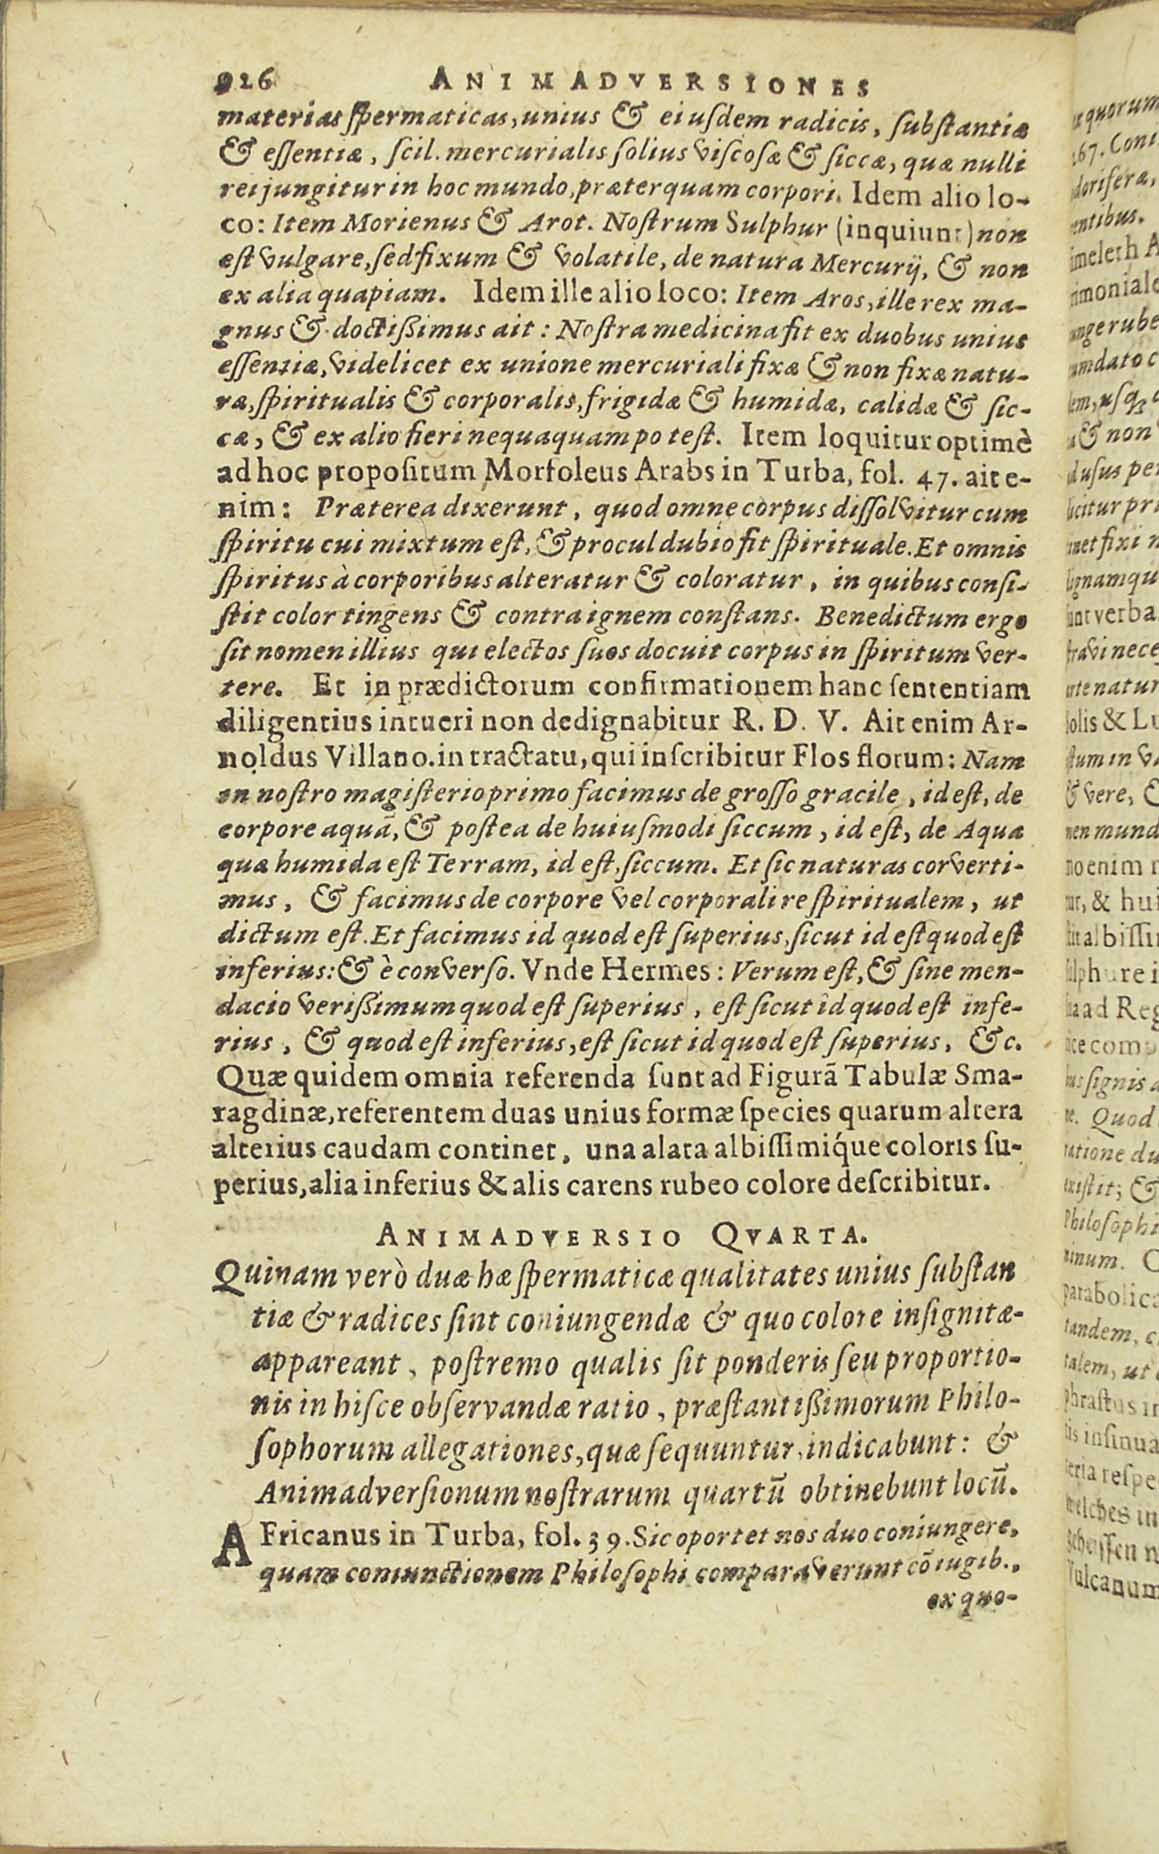 926 ANIMADVERSIONES
materias spermaticas, unius & eiusdem radicis, substantiæ
& essentiæ, scil. mercurialis solius viscosæ & siccæ, quæ nulli
rei jungitur in hoc mundo, præterquam corpori. Idem alio lo-
co: Item Morienus & Arot. Nostrum Sulphur (inquiunt) non
est vulgare, sed fixum & volatile, de natura Mercurij, & non
ex alia quapiam. Idem ille alio loco: Item Aros, ille rex ma-
gnus & doctißimus ait: Nostra medicina fit ex duobus unius
essentiæ, videlicet ex unione mercuriali fixæ & non fixæ natu-
ræ, spiritualis & corporalis, frigidæ & humidæ, calidæ & sic-
cæ, & ex alio fieri nequaquam potest. Item loquitur optimè
ad hoc propositum Morfoleus Arabs in Turba, fol. 47. ait e-
nim: Præterea dixerunt, quod omne corpus dissolvitur cum
spiritu cui mixtum est, & procul dubio fit spirituale. Et omnis
spiritus à corporibus alteratur & coloratur, in quibus consi-
stit color tingens & contra ignem constans. Benedictum ergo
sit nomen illius qui electos suos docuit corpus in spiritum ver-
tere. Et in prædictorum confirmationem hanc sententiam
diligentius intueri non dedignabitur R. D. V. Ait enim Ar-
noldus Villano. in tractatu, qui inscribitur Flos florum: Nam
en nostro magisterio primo facimus de grosso gracile, id est, de
corpore aquā, & postea de huiusmodi siccum, id est, de Aqua
quæ humida est Terram, id est, siccum. Et sic naturas corverti-
mus, & facimus de corpore vel corporali re spiritualem, ut
dictum est. Et facimus id quod est superius, sicut id est quod est
inferius: & è converso. Vnde Hermes: Verum est, & sine men-
dacio verißimum quod est superius, est sicut id quod est infe-
rius, & quod est inferius, est sicut id quod est superius, &c.
Quæ quidem omnia referenda sunt ad Figurā Tabulæ Sma-
ragdinæ, referentem duas unius formæ species quarum altera
alterius caudam continet, una alata albissimiq́ue coloris su-
perius, alia inferius & alis carens rubeo colore describitur.
ANIMADVERSIO QVARTA.
Quinam verò duæ hæ spermaticæ qualitates unius substan
tiæ & radices sint coniungendæ & quo colore insignitæ-
appareant, postremo qualis sit ponderis seu proportio-
nis in hisce observandæ ratio, præstantißimorum Philo-
sophorum allegationes, quæ sequuntur, indicabunt: &
Animadversionum nostrarum quartū obtinebunt locū.
AFricanus in Turba, fol. 39. Sic oportet nos duo coniungere,
quam coniunctionem Philosophi comparaverunt cōiugib.,
ex quo-